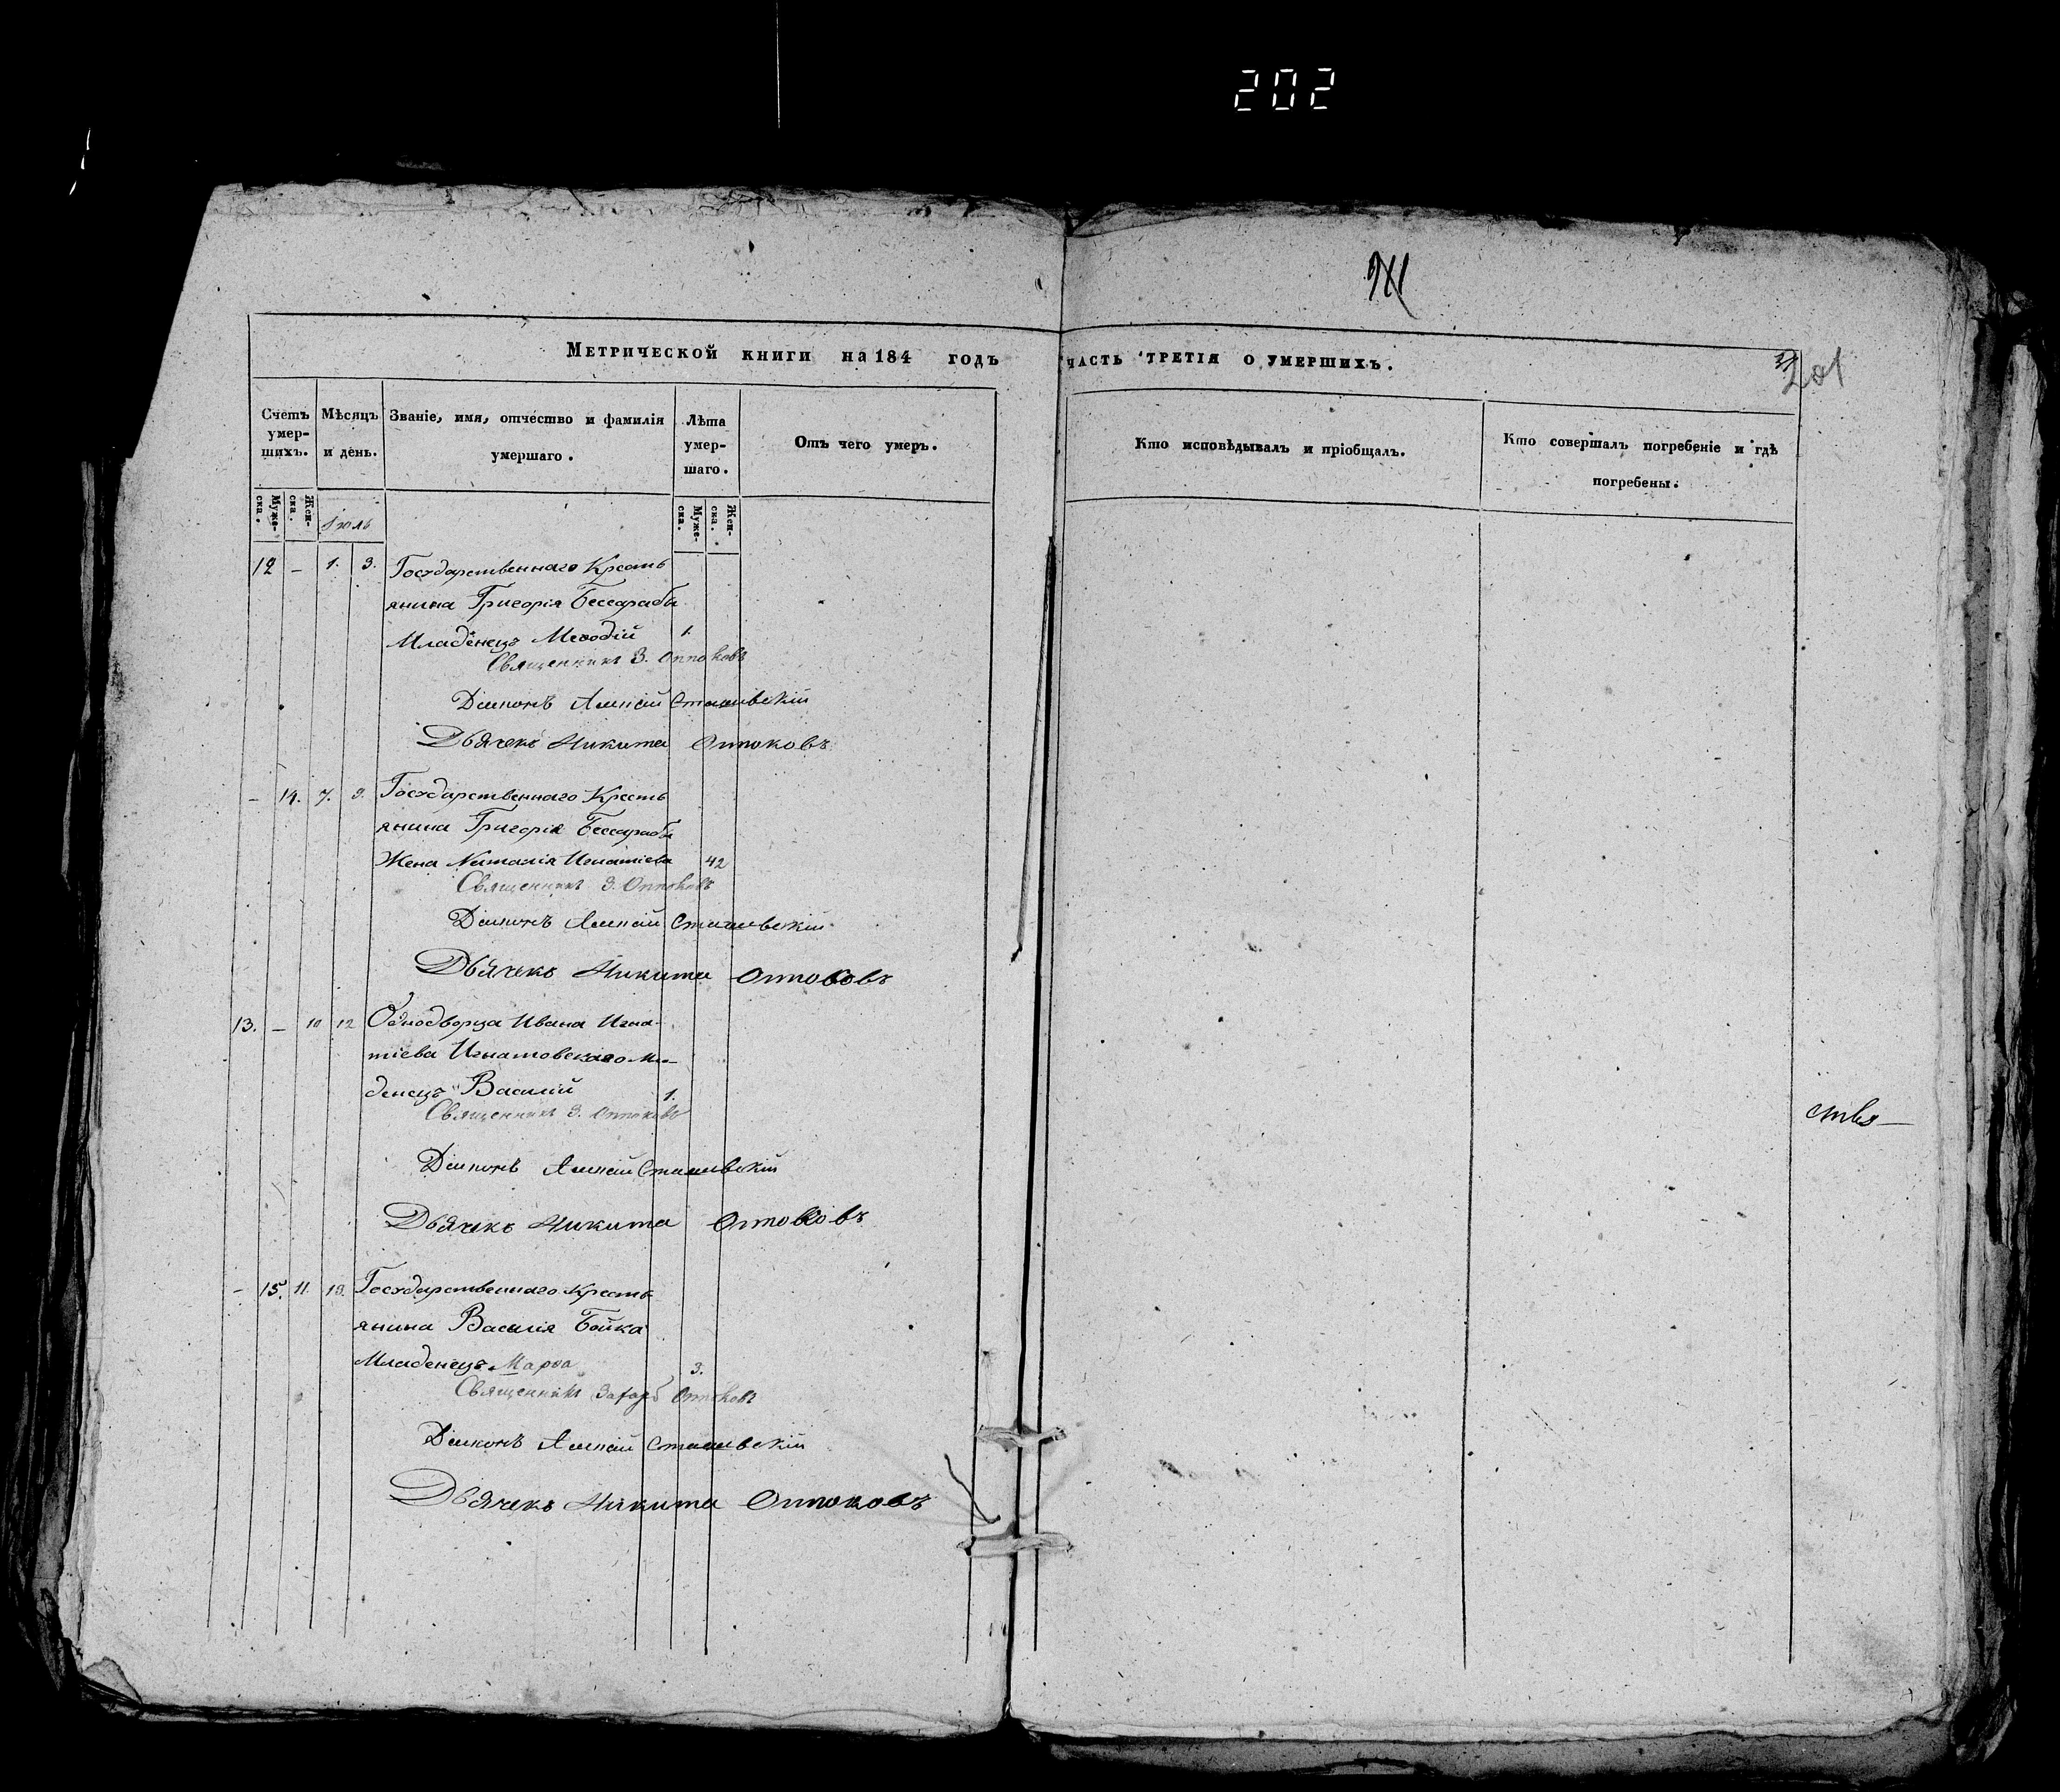 202
201
Метрической книги на 184 годъ часть третія о умершихъ.
Счетъ умер-шихъ.
Мѣсяцъ и день.
Званіе, имя, отчество и фамилія умершаго.
Лѣта умер-шаго.
Отъ чего умеръ.
Кто исповѣдывалъ и пріобщалъ.
Кто совершалъ погребеніе и гдѣ погребены.
Муже-ска.
Жен-ска.
Іюль
Муже-ска.
Жен-ска.
12 – 1. 3. Государственнаго Кресть
янина Григорія Бессараба
Младенецъ Меѳодій 1.
Священникъ З. Оппоковъ
Діаконъ Сташевскій
Дьячекъ Никита Оппоковъ
– 14. 7. 9. Государственнаго Кресть
янина Григорія Бессараба
Жена Наталія Игнатіева 42
Священникъ З. Оппоковъ
Діаконъ Сташевскій
Дьячекъ Никита Оппоковъ
13. – 10 12 Однодворца Ивана Игна-
тіева Игнатовскаго Мла-
денецъ Василій 1.
Священникъ З. Оппоковъ
Діаконъ Сташевскій
Дьячекъ Никита Оппоковъ
– 15. 11. 13. Государственнаго Кресть
янина Василія Бойка
Младенецъ Марѳа 3.
Священникъ Захарій Оппоковъ
Діаконъ Сташевскій
Дьячекъ Никита Оппоковъ
ства